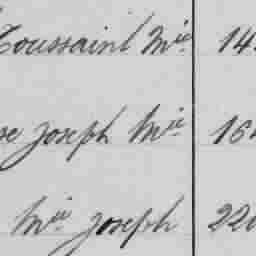 Toussaint Mie 14
se Joseph Mie 16
Mie Joseph 220